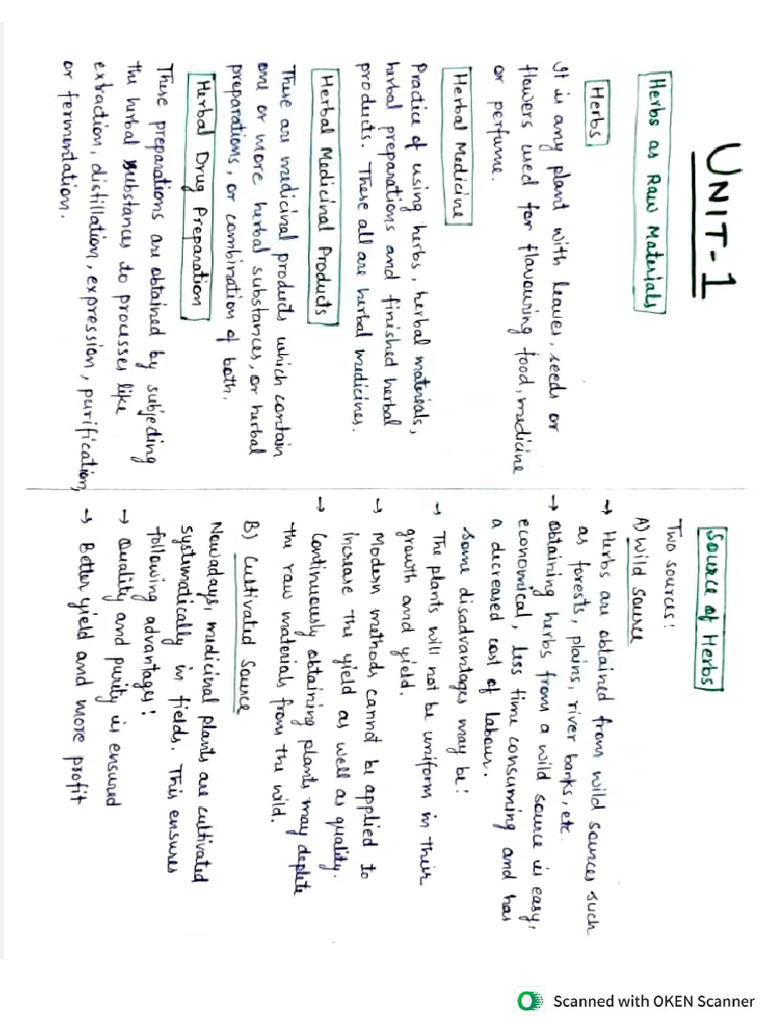 UNIT-1
Herbs as Raw Materials
Herbs
It is any plant with leaves, seeds or
flowers used for flavouring food, medicine
or perfume.
Herbal Medicine
Practice of using herbs, herbal materials,
herbal preparations and finished herbal
products. These all are herbal medicines.
Herbal Medicinal Products
These are medicinal products which contain
one or more herbal substances, or herbal
preparations, or combination of both.
Herbal Drug Preparation
These preparations are obtained by subjecting
the herbal substances to processes like
extraction, distillation, expression, purification,
or fermentation.
Source of Herbs
Two sources:
A) Wild Source
→ Herbs are obtained from wild sources such
as forests, plains, river banks, etc.
→ Obtaining herbs from a wild source is easy,
economical, less time consuming and has
a decreased cost of labour.
Some disadvantages may be:
→ The plants will not be uniform in their
growth and yield.
→ Modern methods cannot be applied to
increase the yield as well as quality.
→ Continuously obtaining plants may deplete
the raw materials from the wild.
B) Cultivated Source
Nowadays medicinal plants are cultivated
systematically in fields. This ensures
following advantages:
→ Quality and purity is ensured
→ Better yield and more profit
Scanned with OKEN Scanner